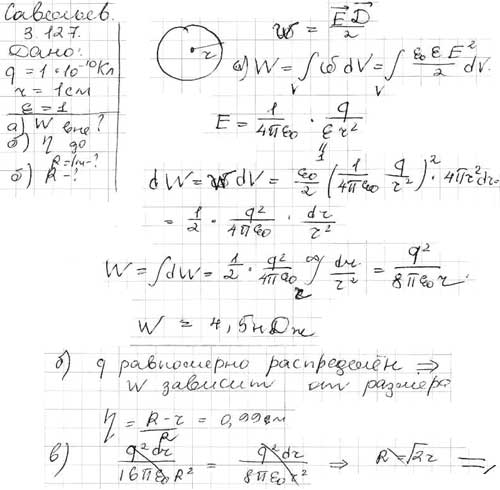 Савельев.
3.127.
Дано:
q = 1 · 10⁻¹⁰ Кл
r = 1 см
ε = 1
а) W вне?
б) η до
R = 1м - ?
б) R - ?
r
w = E⃗D⃗/2
а) W = ∫_V w dV = ∫_V ε₀εE²/2 dV.
E = 1/4πε₀ · q/εr²
1
dW = w dV = ε₀/2 (1/4πε₀ q/r²)² · 4πr²dr =
= 1/2 · q²/4πε₀ · dr/r²
W = ∫dW = 1/2 · q²/4πε₀ ∫_r^∞ dr/r² = q²/8πε₀r.
W = 4,5 нДж
б) q равномерно распределён ⇒
W зависит от размера
η = R - r/R = 0,99 см
в) q²dr/16πε₀R² = q²dr/8πε₀r² ⇒ R = √2r